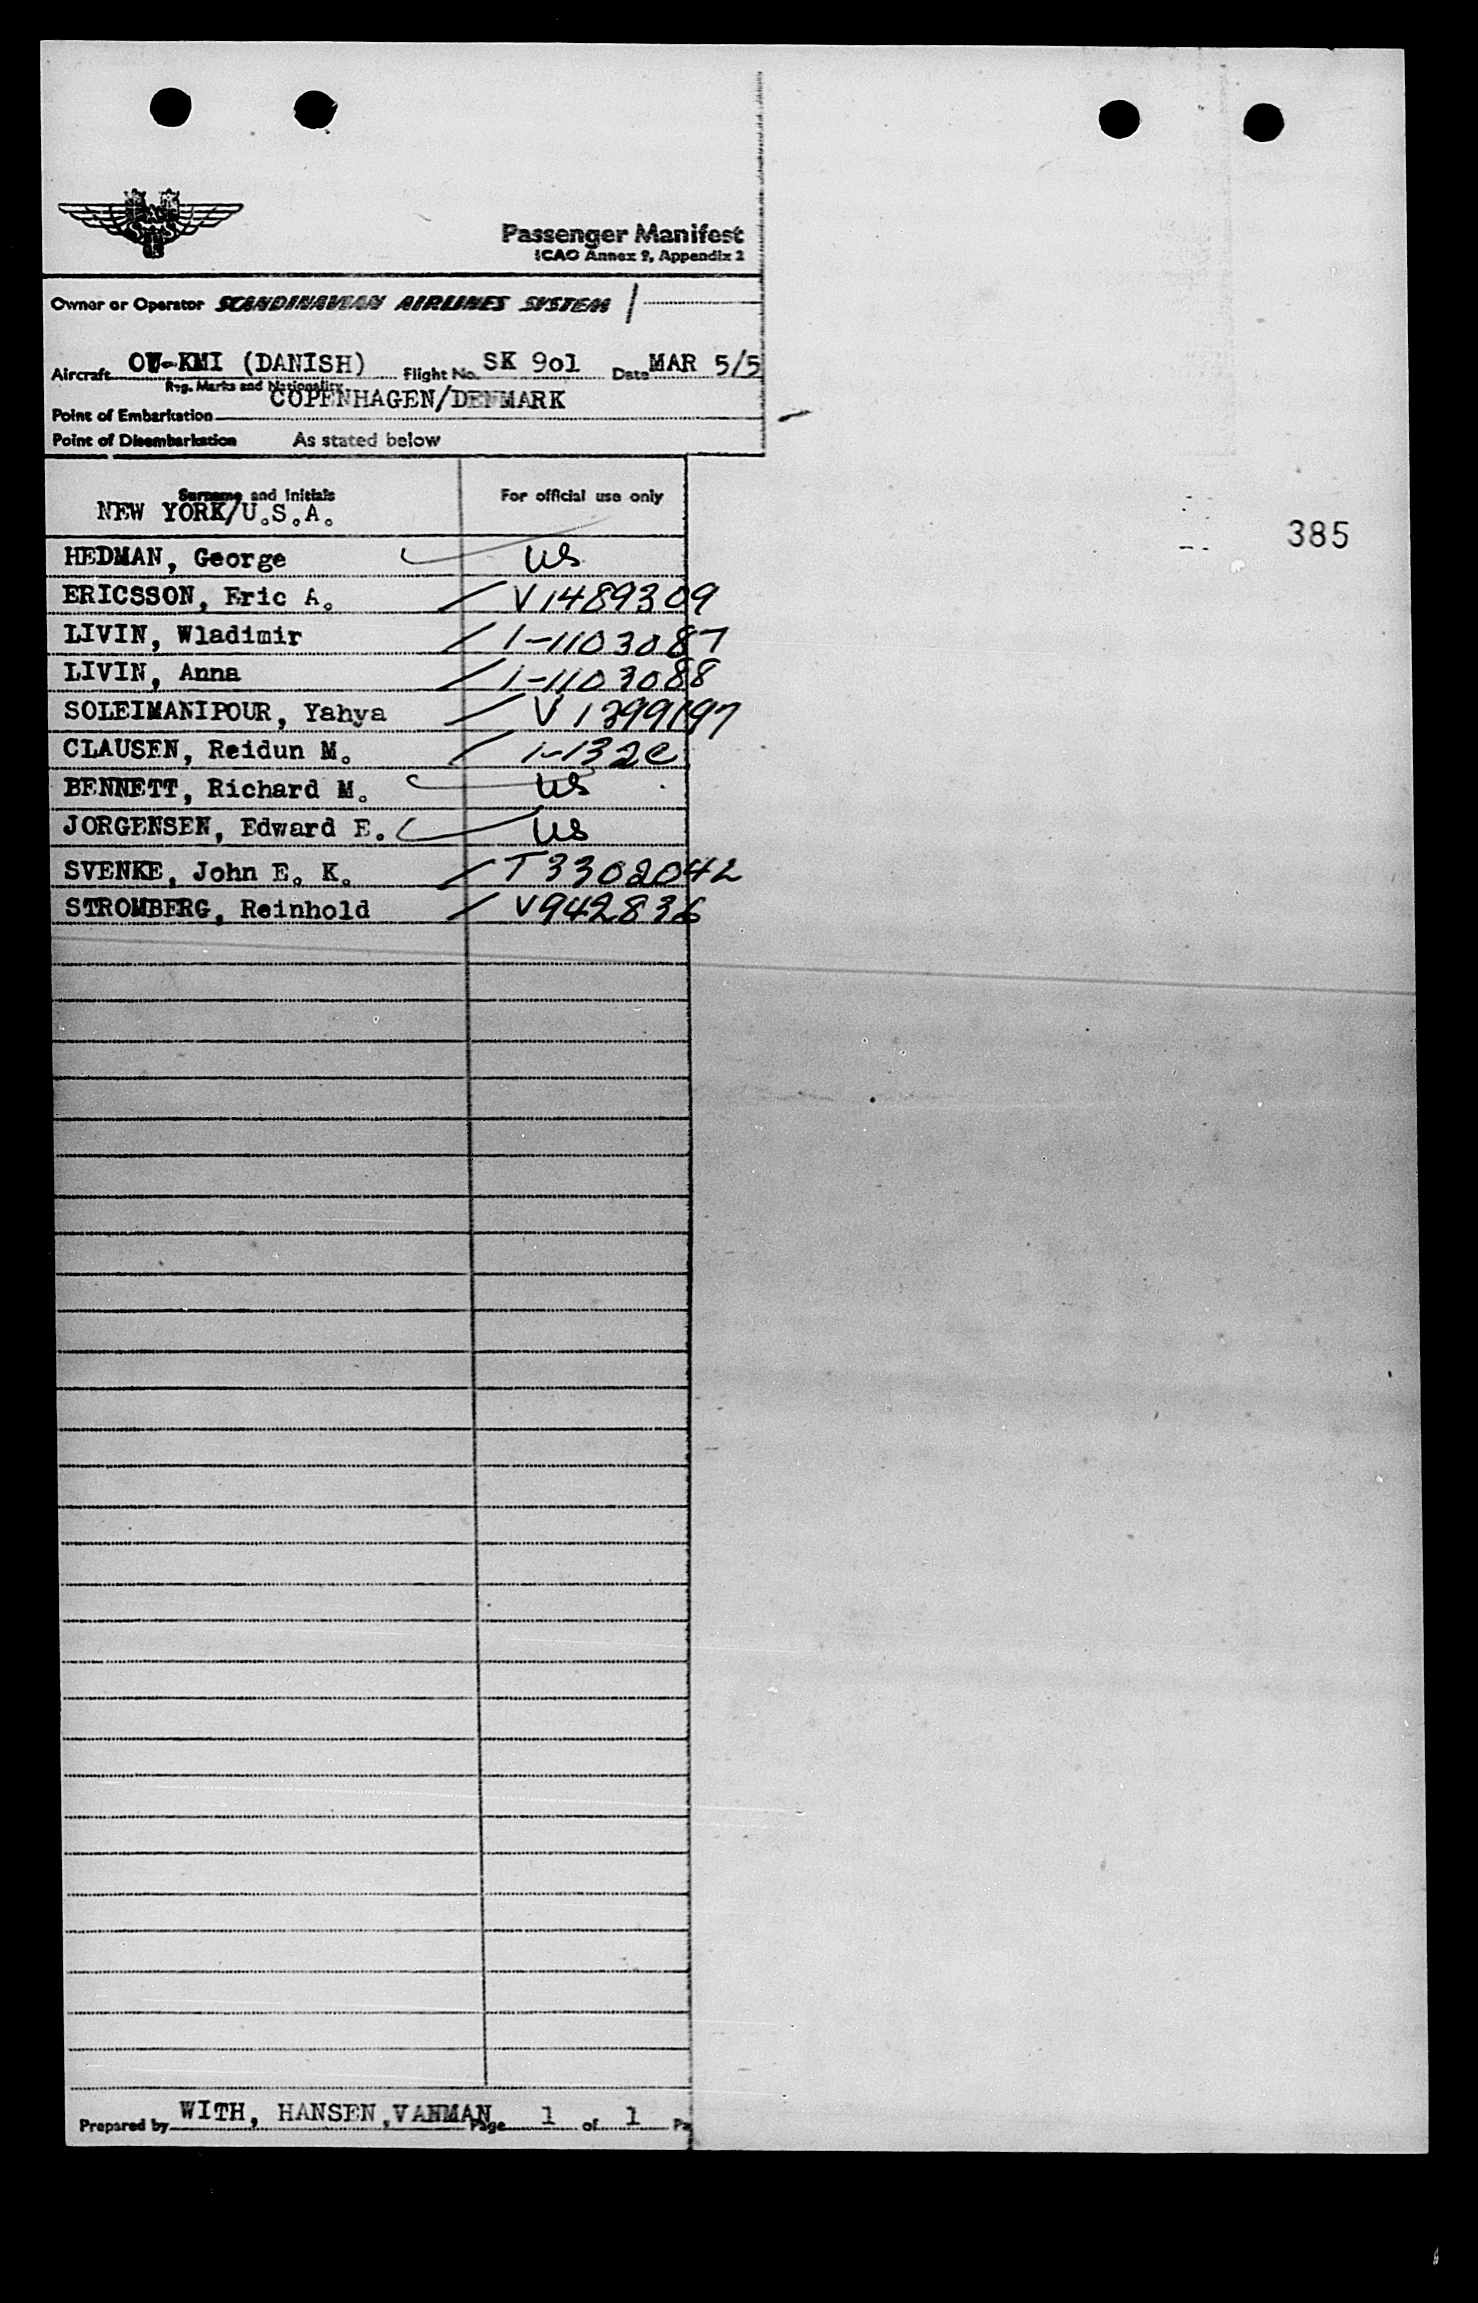 SAS
Passenger Manifest
ICAO Annex 9, Appendix 2
Owner or Operator SCANDINAVIAN AIRLINES SYSTEM /
Aircraft OY-KMI (DANISH) Flight No. SK 9o1 Date MAR 5/5
Reg. Marks and Nationality
Point of Embarkation COPENHAGEN/DENMARK
Point of Disembarkation As stated below
Surname and Initials For official use only
NEW YORK/U.S.A.
385
HEDMAN, George US
ERICSSON, Eric A. V1489309
LIVIN, Wladimir 1-1103087
LIVIN, Anna 1-1103088
SOLEIMANIPOUR, Yahya V1299197
CLAUSEN, Reidun M. 1-132c
BENNETT, Richard M. US
JORGENSEN, Edward E. US
SVENKE, John E. K. T3302042
STROMBERG, Reinhold V942836
Prepared by WITH, HANSEN, VAHMAN Page 1 of 1 Pa